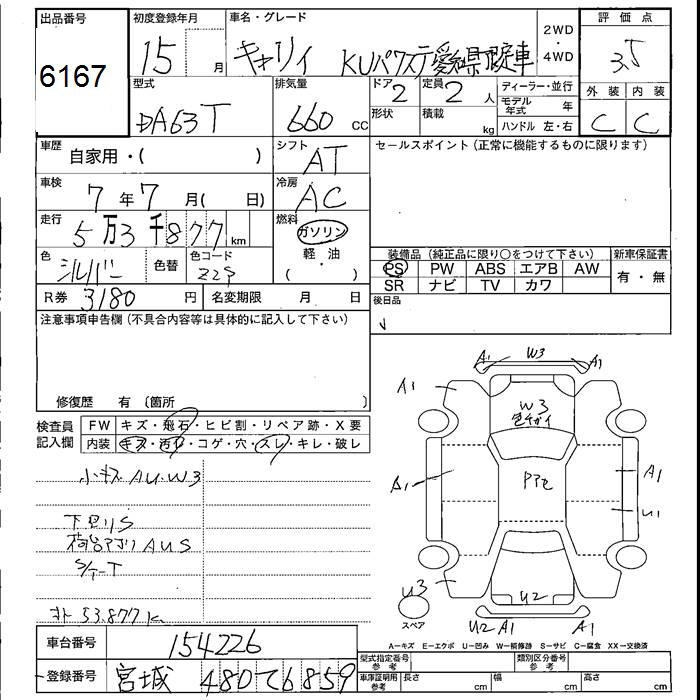 出品番号
6167
初度登録年月
15 月
車名・グレード
キャリイ KUパワステ愛知県限定車
2WD
・
4WD
評価点
3.5
外装 内装
C C
型式
DA63T
排気量
660 cc
ドア 定員
2 2 人
形状 積載
kg
ディーラー・並行
モデル年式 年
ハンドル 左・右
車歴
自家用・( )
シフト
AT
セールスポイント (正常に機能するものに限ります)
車検
7年7月( 日)
冷房
AC
走行
5万3千877km
燃料
ガソリン
軽・油
( )
色
シルバー
色替
色コード
Z2S
装備品 (純正品に限り○をつけて下さい)
新車保証書
PS PW ABS エアB AW
SR ナビ TV カワ
有・無
R券 3180 円
名変期限 月 日
後日品
注意事項申告欄 (不具合内容等は具体的に記入して下さい)
修復歴 有 〔箇所 〕
検査員
記入欄
FW キズ・飛石・ヒビ割・リペア跡・X要
内装 キズ・汚れ・コゲ・穴・スレ・キレ・破レ
小キズ AU・W3
下回りS
荷台アオリ AUS
S/T-T
オト 53.877k
A1 W3 A1
A1
W3
色チガイ
A1
A1
U1
U3
スペア
U2
U2 A1 A1
A=キズ E=エクボ U=凹み W=補修跡 S=サビ C=腐食 XX=交換済
車台番号
154226
登録番号
宮城 480 て 6859
型式指定番号
参考
類別区分番号
参考
車庫証明用
参考
長さ cm 幅 cm 高さ cm